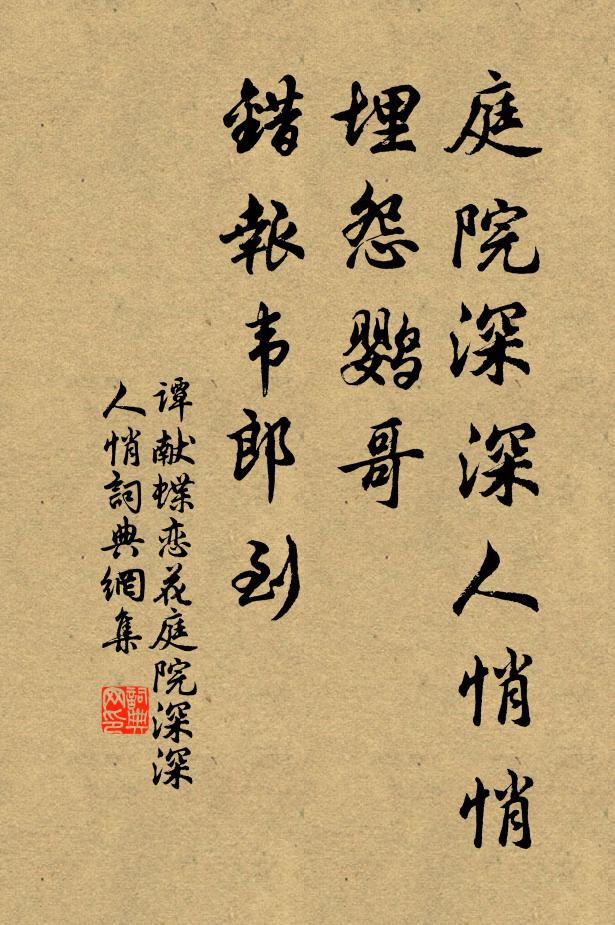 庭院深深人悄悄
埋怨鹦哥
錯報韦郎到
谭献蝶恋花庭院深深
人悄詞典網集
詞典
网印